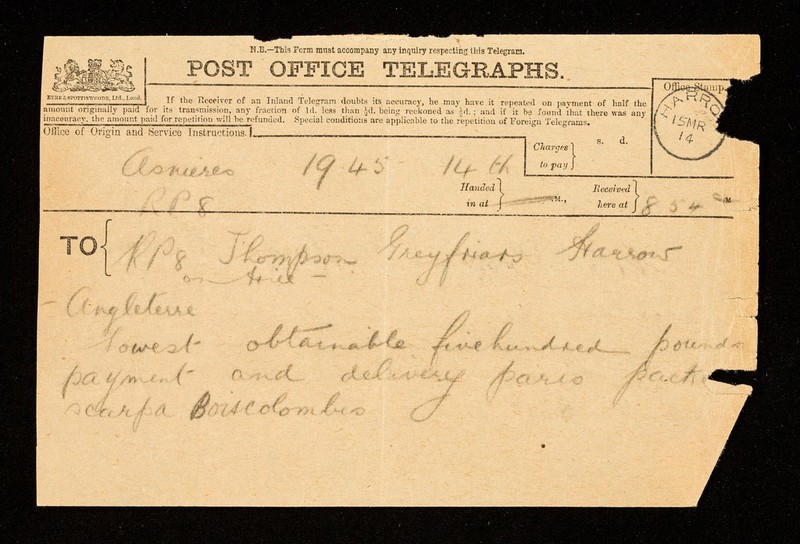 N.B.—This Form must accompany any inquiry respecting this Telegram.
POST OFFICE TELEGRAPHS.
EYRE & SPOTTISWOODE, Ltd., Lond.
If the Receiver of an Inland Telegram doubts its accuracy, he may have it repeated on payment of half the
amount originally paid for its transmission, any fraction of 1d. less than ½d. being reckoned as ½d.; and if it be found that there was any
inaccuracy, the amount paid for repetition will be refunded. Special conditions are applicable to the repetition of Foreign Telegrams.
Office Stamp.
HARRO
15MR
14
Office of Origin and Service Instructions.
Charges to pay
s. d.
Asnieres 19 45 14th
RP8
Handed in at
M.,
Received here at
8 54
M
TO
RP8 Thompson Greyfriars Harrow
on Hill
Angleterre
Lowest obtainable fivehundred pounds
payment and delivery paris
scarpa Boiscolombes